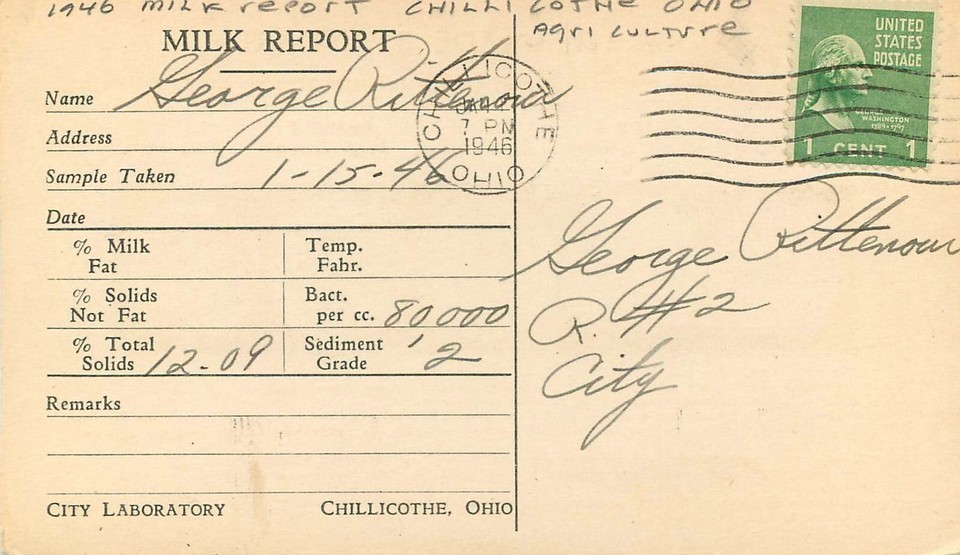 1946 MILK report CHILLICOTHE OHIO
Agriculture
MILK REPORT
Name George Rittenour
Address
Sample Taken 1-15-46
Date
% Milk Fat
Temp. Fahr.
% Solids Not Fat
Bact. per cc. 80000
% Total Solids 12.09
Sediment Grade 2
Remarks
CITY LABORATORY CHILLICOTHE, OHIO
CHILLICOTHE
7 PM
1946
OHIO
UNITED
STATES
POSTAGE
GEORGE
WASHINGTON
1789-1797
1 CENT 1
George Rittenour
R. #2
City